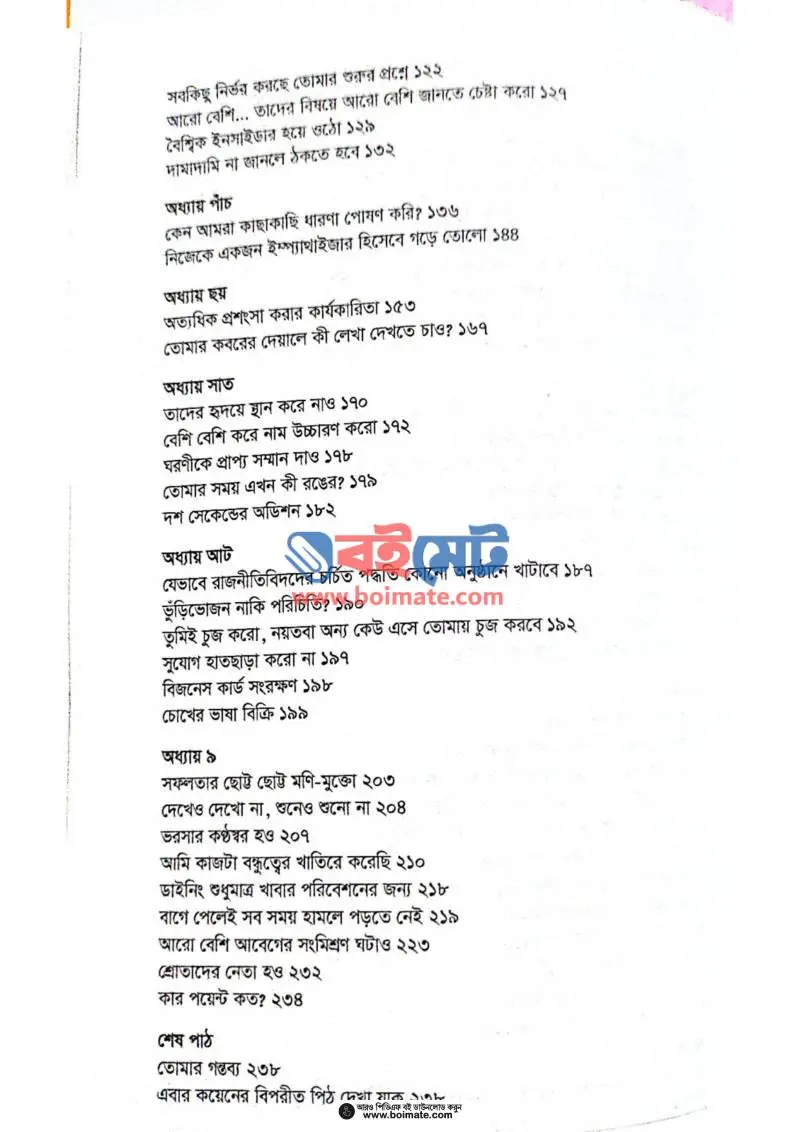 সবকিছু নির্ভর করছে তোমার শুরুর প্রশ্নে ১২২
আরো বেশি... তাদের বিষয়ে আরো বেশি জানতে চেষ্টা করো ১২৭
বৈশ্বিক ইনসাইডার হয়ে ওঠো ১২৯
দামাদামি না জানলে ঠকতে হবে ১৩২
অধ্যায় পাঁচ
কেন আমরা কাছাকাছি ধারণা পোষণ করি? ১৩৬
নিজেকে একজন ইম্প্যাথাইজার হিসেবে গড়ে তোলো ১৪৪
অধ্যায় ছয়
অত্যধিক প্রশংসা করার কার্যকারিতা ১৫৩
তোমার কবরের দেয়ালে কী লেখা দেখতে চাও? ১৬৭
অধ্যায় সাত
তাদের হৃদয়ে স্থান করে নাও ১৭০
বেশি বেশি করে নাম উচ্চারণ করো ১৭২
ঘরণীকে প্রাপ্য সম্মান দাও ১৭৮
তোমার সময় এখন কী রঙের? ১৭৯
দশ সেকেন্ডের অডিশন ১৮২
বইমেট
অধ্যায় আট
যেভাবে রাজনীতিবিদদের চর্চিত পদ্ধতি কোনো অনুষ্ঠানে খাটাবে ১৮৭
www.boimate.com
ভুঁড়িভোজন নাকি পরিচিতি? ১৯০
তুমিই চুজ করো, নয়তবা অন্য কেউ এসে তোমায় চুজ করবে ১৯২
সুযোগ হাতছাড়া করো না ১৯৭
বিজনেস কার্ড সংরক্ষণ ১৯৮
চোখের ভাষা বিক্রি ১৯৯
অধ্যায় ৯
সফলতার ছোট্ট ছোট্ট মণি-মুক্তো ২০৩
দেখেও দেখো না, শুনেও শুনো না ২০৪
ভরসার কণ্ঠস্বর হও ২০৭
আমি কাজটা বন্ধুত্বের খাতিরে করেছি ২১০
ডাইনিং শুধুমাত্র খাবার পরিবেশনের জন্য ২১৮
বাগে পেলেই সব সময় হামলে পড়তে নেই ২১৯
আরো বেশি আবেগের সংমিশ্রণ ঘটাও ২২৩
শ্রোতাদের নেতা হও ২৩২
কার পয়েন্ট কত? ২৩৪
শেষ পাঠ
তোমার গন্তব্য ২৩৮
এবার কয়েনের বিপরীত পিঠ দেখা যাক
আরও পিডিএফ বই ডাউনলোড করুন
www.boimate.com